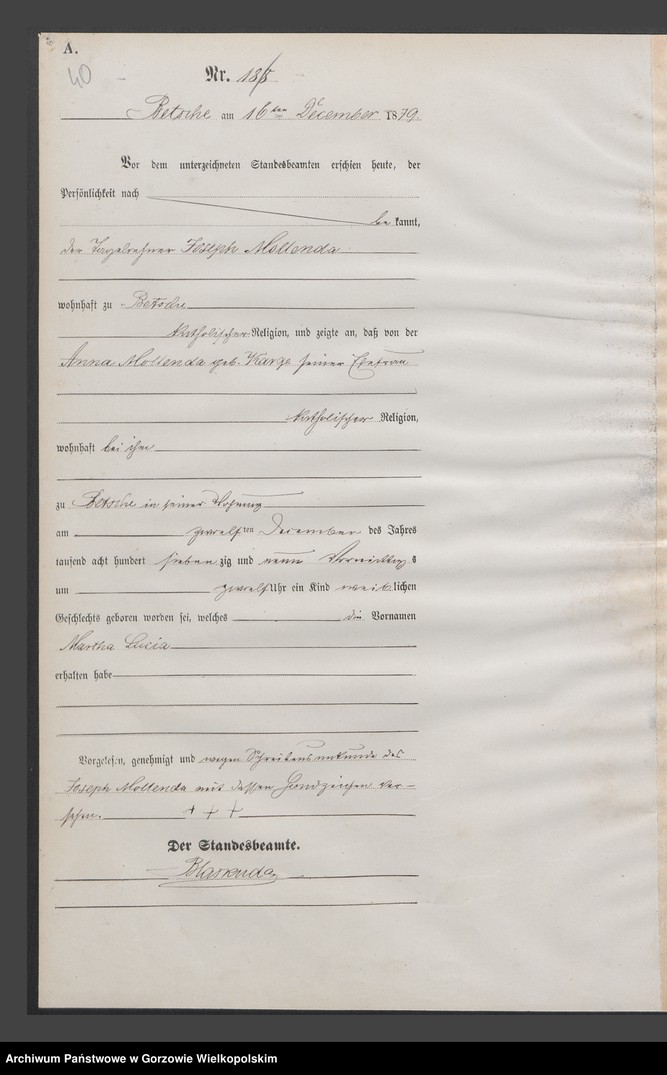 A.
40
Nr. 188
Betsche am 16ten December 1879.
Vor dem unterzeichneten Standesbeamten erschien heute, der
Persönlichkeit nach
be kannt,
der Tagelöhner Joseph Mollenda
wohnhaft zu Betsche
katholischer Religion, und zeigte an, daß von der
Anna Mollenda geb. Karge seiner Ehefrau
katholischer Religion,
wohnhaft bei ihm
zu Betsche in seiner Wohnung
am zwölf ten December des Jahres
tausend acht hundert sieben zig und neun Vormittag s
um zwölf Uhr ein Kind weib lichen
Geschlechts geboren worden sei, welches die Vornamen
Martha Lucia
erhalten habe
Vorgelesen, genehmigt und wegen Schreibensunkunde des
Joseph Mollenda mit dessen Handzeichen ver-
sehen. + + +
Der Standesbeamte.
Archiwum Państwowe w Gorzowie Wielkopolskim